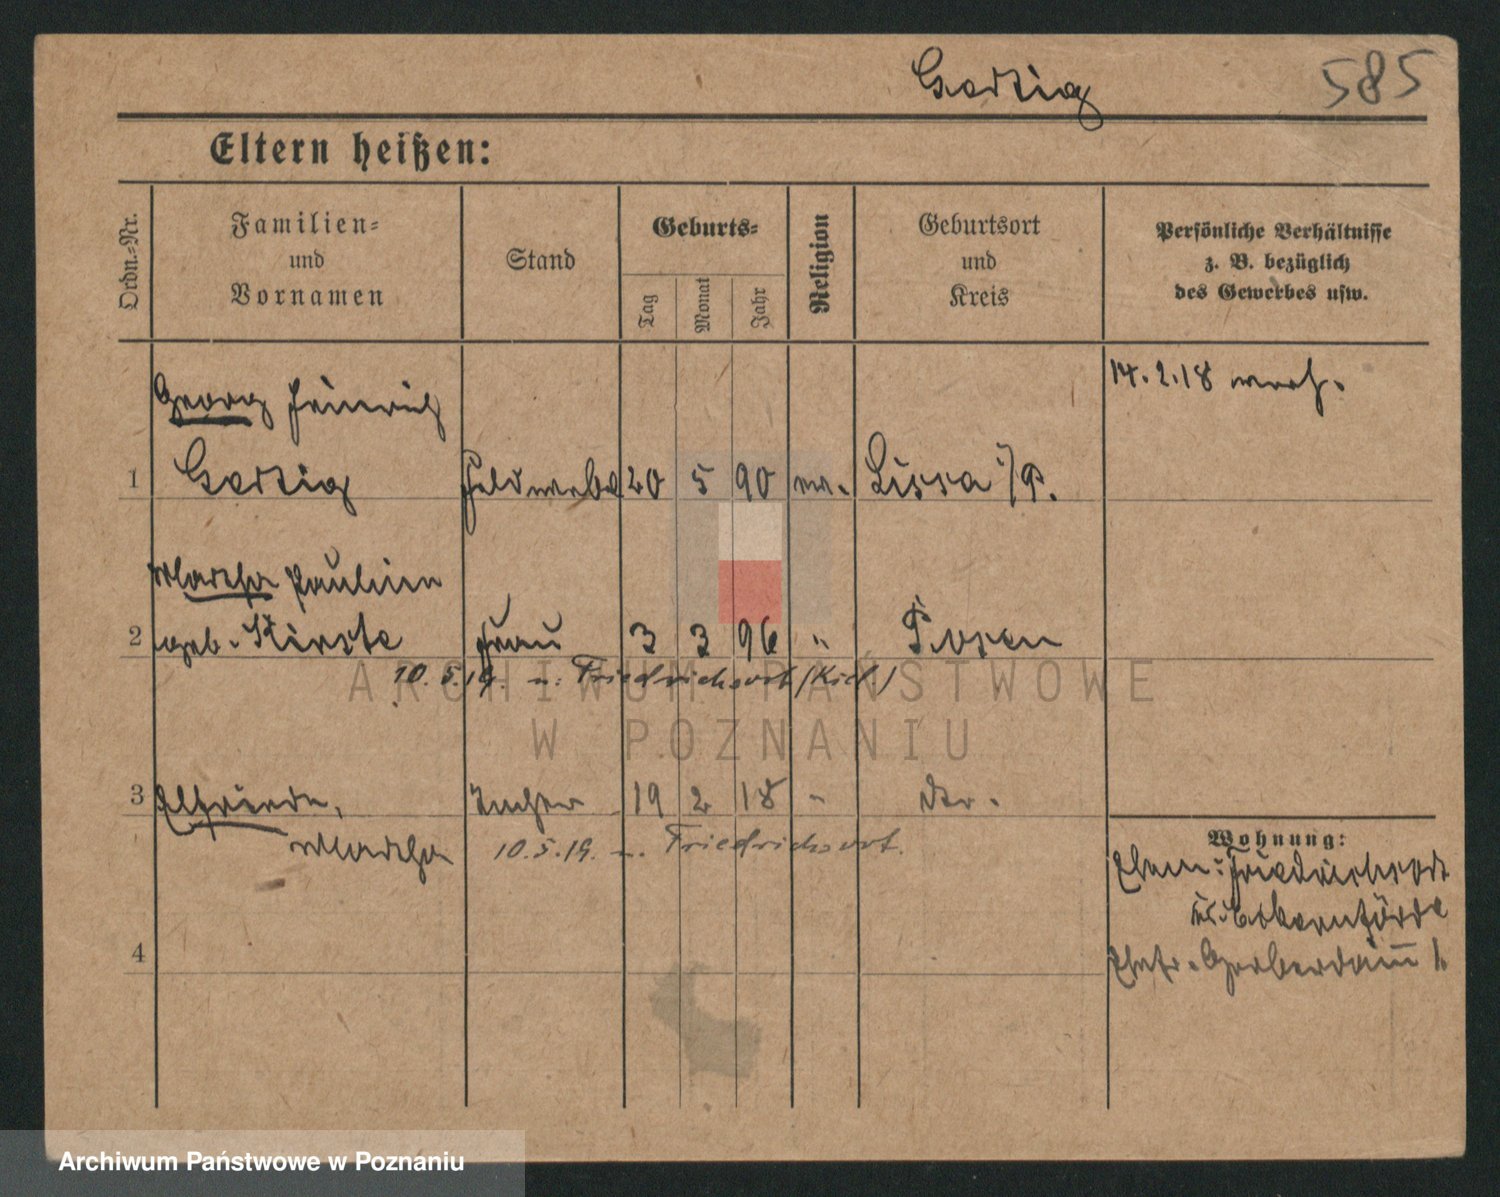 Gertzig 585
Eltern heißen:
Ordn.-Nr.
Familien-
und
Vornamen
Stand
Geburts-
Tag
Monat
Jahr
Religion
Geburtsort
und
Kreis
Persönliche Verhältnisse
z. B. bezüglich
des Gewerbes usw.
14.2.18 verh.
Georg Heinrich
1 Feldwebel 20 5 90 ev. Lissa i/P.
Martha
2 geb. Kirste Frau 3 3 96 " Posen
10.5.19. n. Friedrichsort (Kiel)
3 Elfriede, Tochter 19 2 18 " der.
Martha 10.5.19. n. Friedrichsort.
Wohnung:
Friedrichsort
4
ARCHIWUM PAŃSTWOWE
W POZNANIU
Archiwum Państwowe w Poznaniu